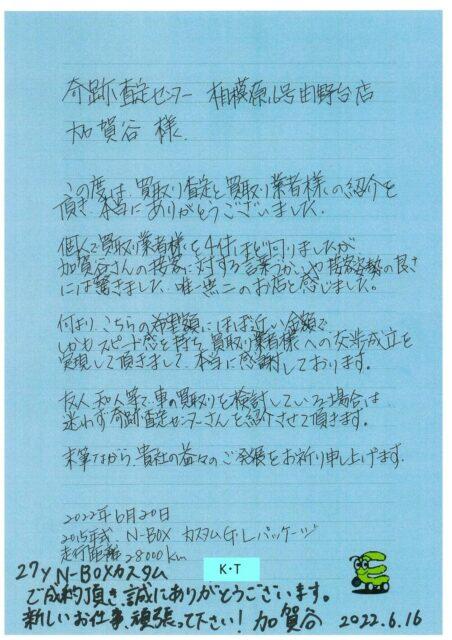 奇跡査定センター 相模原16号由野台店
加賀谷 様.
この度は、買取り査定と買取り業者様の紹介を
頂き、本当にありがとうございました.
個人で買取り業者様を4件ほど回りましたが
加賀谷さんの接客に対する言葉づかいや接客姿勢の良さ
には驚きました. 唯一無二のお店と感じました。
何より、こちらの希望額にほぼ近い金額で
しかもスピード感を持ち、買取り業者様への交渉成立を
実現して頂きまして、本当に感謝しております。
友人、知人等で、車の買取りを検討している場合は
迷わず奇跡査定センターさんを紹介させて頂きます。
末筆ながら、貴社の益々のご発展をお祈り申し上げます。
2022年6月20日
2015年式 N-BOX カスタムG・Lパッケージ
走行距離 28000km
K・T
27y N-BOXカスタム
ご成約頂き、誠にありがとうございます。
新しいお仕事、頑張って下さい! 加賀谷 2022.6.16